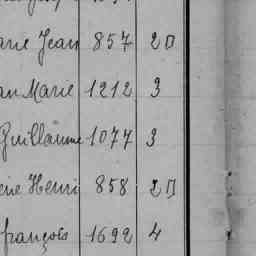 Jean 857 2
Marie 1212 3
Guillaume 1077 3
Henri 858 2
françois 1692 4